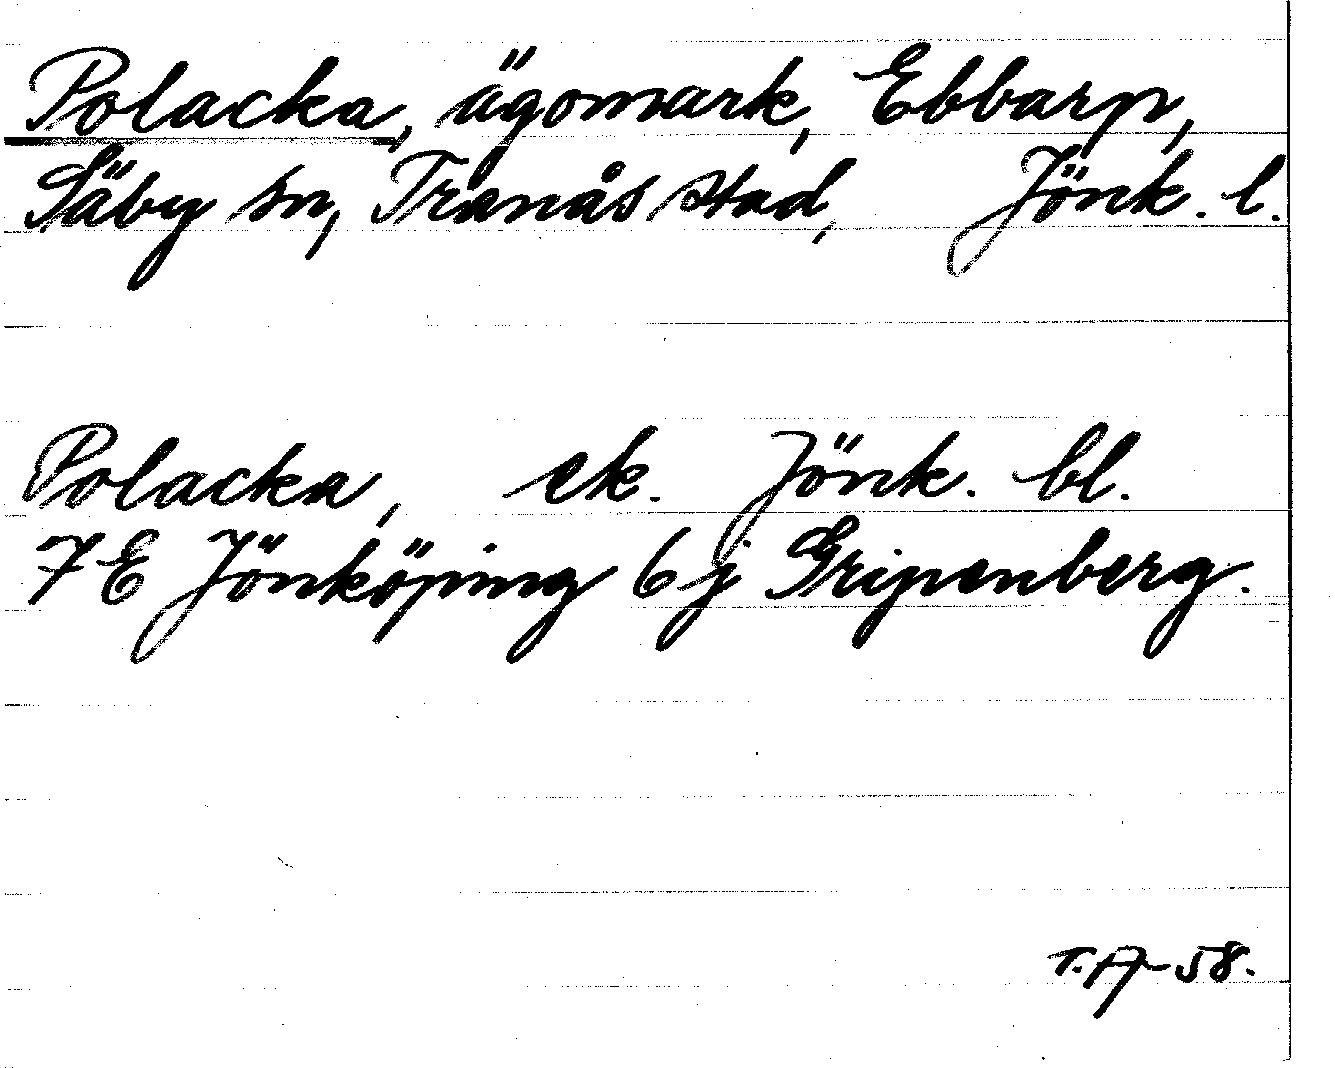 Polacka, ägomark, Ebbarp,
Säby sn, Tranås stad, Jönk. l.
Polacka, ek. Jönk. bl.
7 E Jönköping 6 j Gripenberg.
T.A-58.